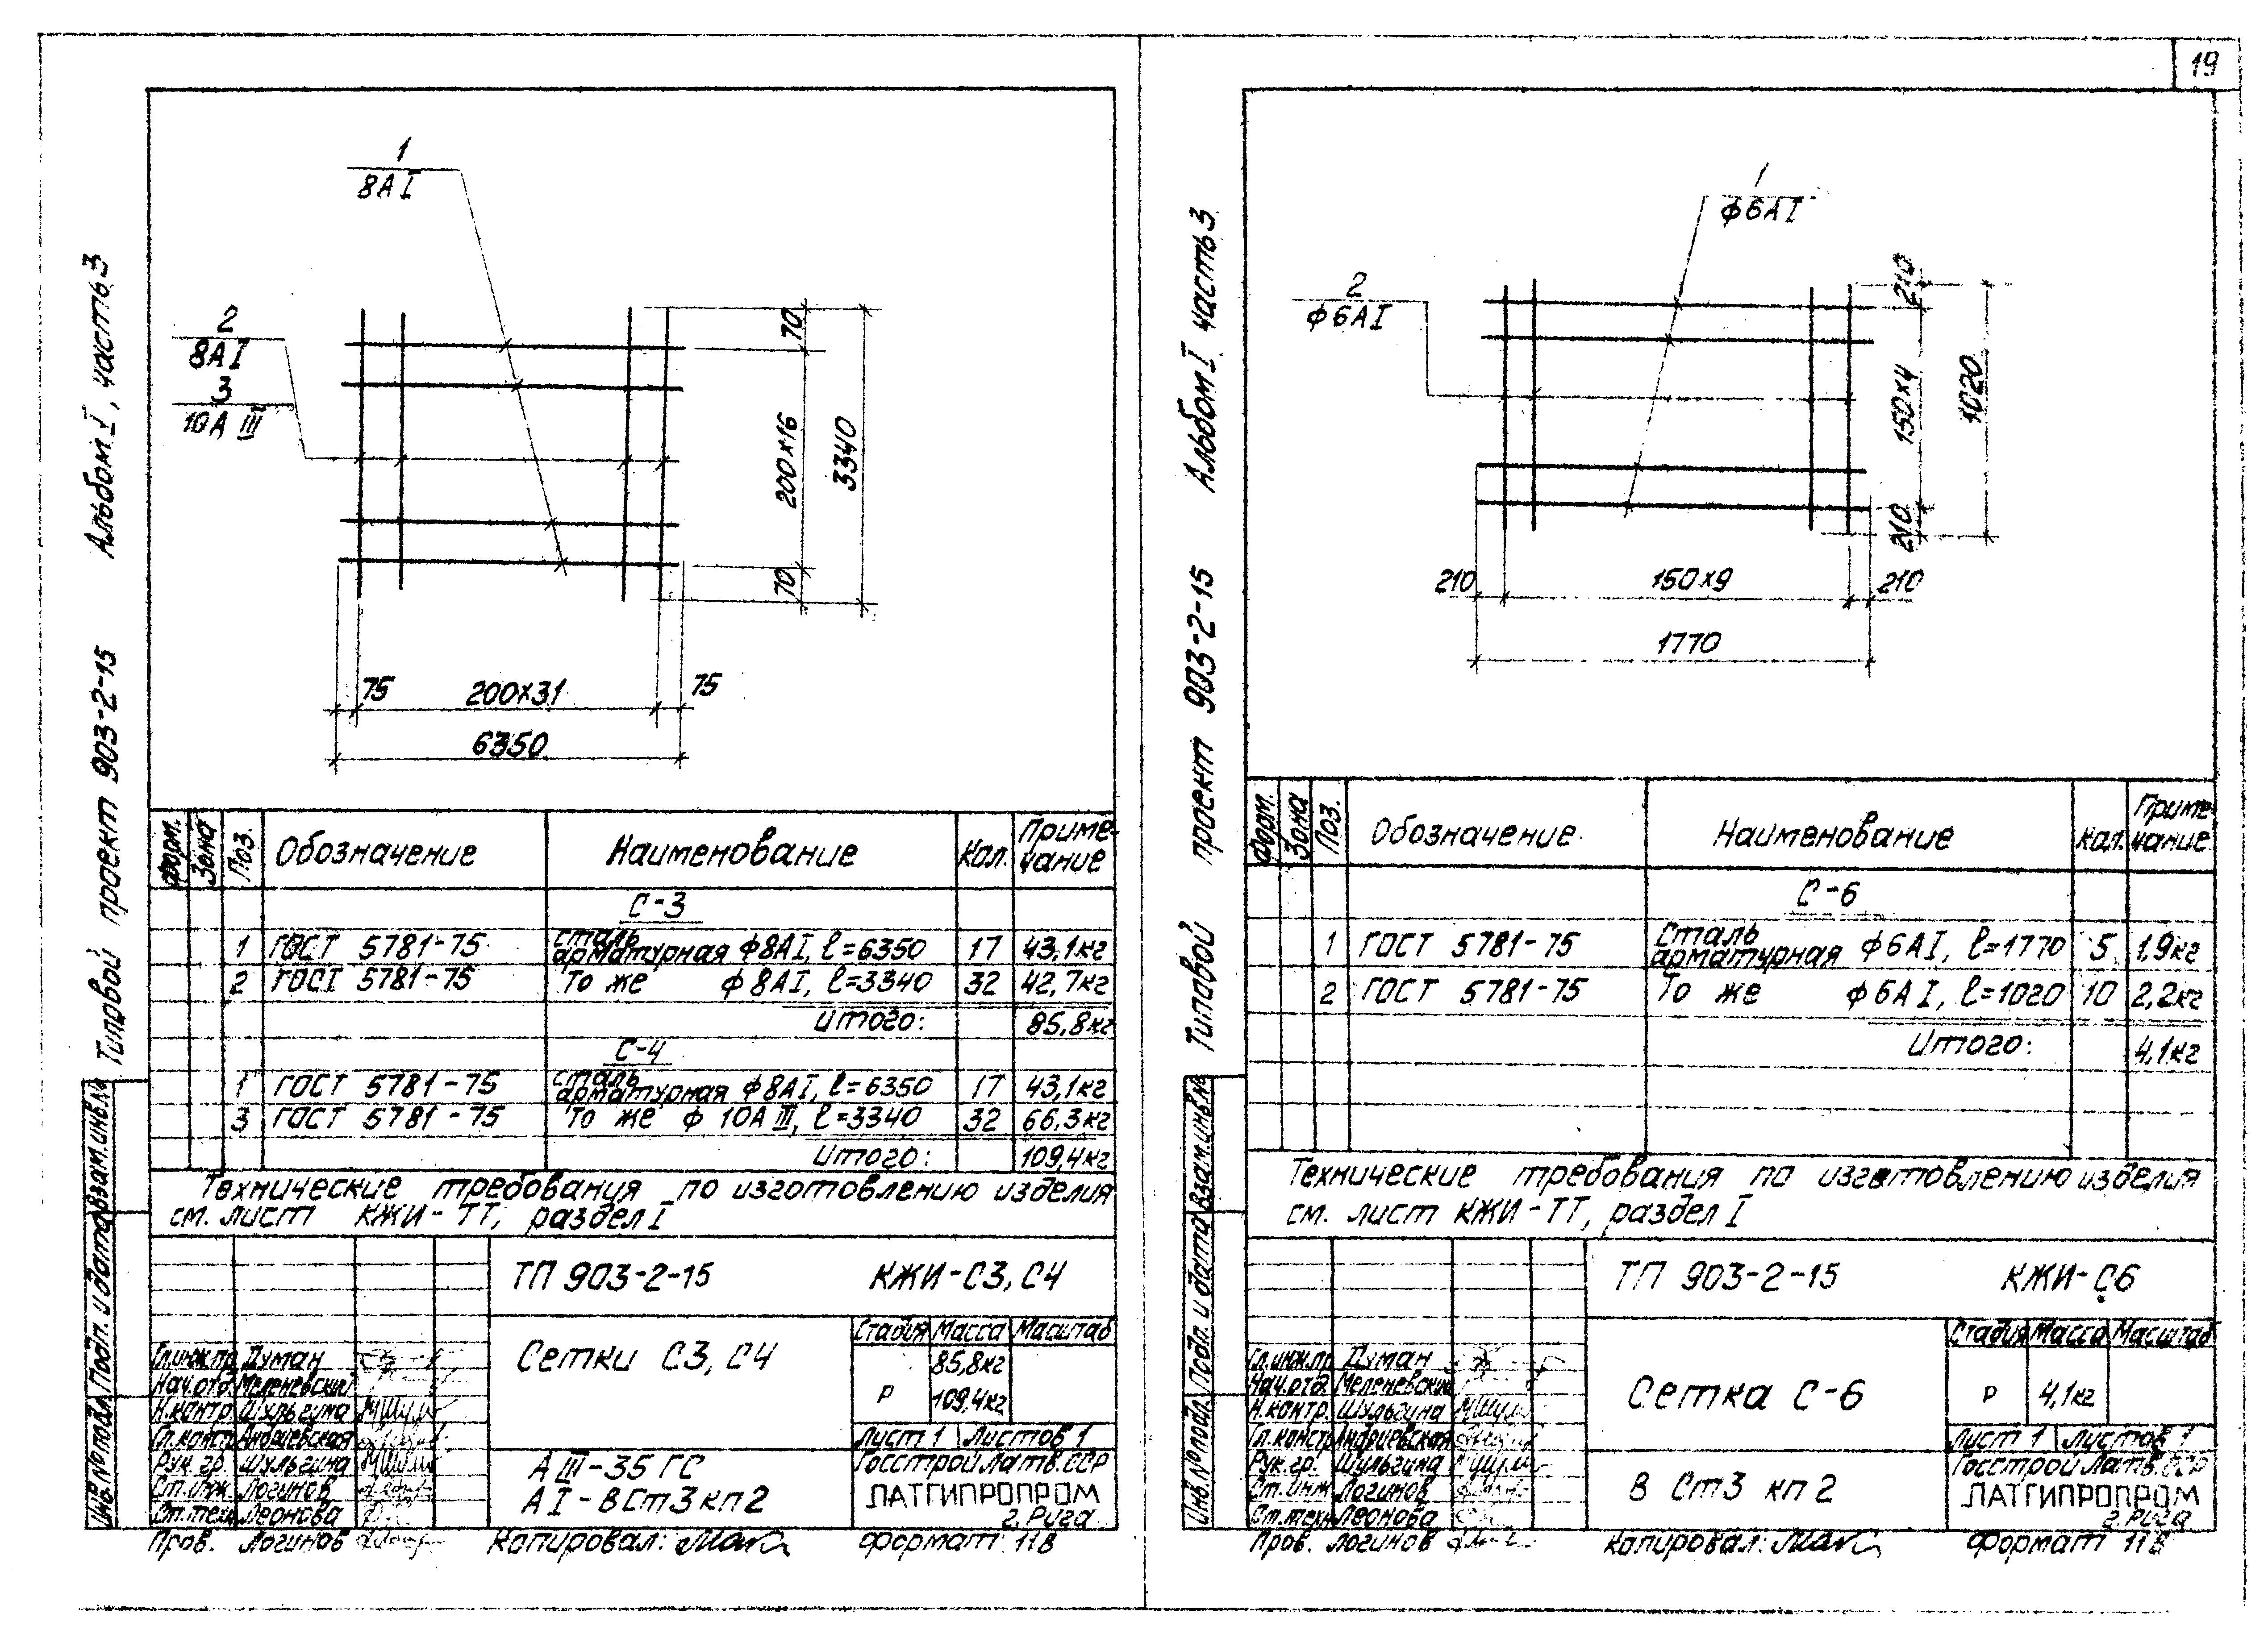 19
Типовой проект 903-2-15 Альбом I, часть 3
1
8АI
2
8АI
3
10А III
70
200×16
70
3340
75
200×31
75
6350
Форм. Зона Поз. Обозначение Наименование Кол. Примечание
С-3
1 ГОСТ 5781-75 Сталь арматурная ф8АI, ℓ=6350 17 43,1кг
2 ГОСТ 5781-75 То же ф8АI, ℓ=3340 32 42,7кг
Итого: 85,8кг
С-4
1 ГОСТ 5781-75 Сталь арматурная ф8АI, ℓ=6350 17 43,1кг
3 ГОСТ 5781-75 То же ф 10А III, ℓ=3340 32 66,3кг
Итого: 109,4кг
Технические требования по изготовлению изделия
см. лист КЖИ-ТТ, раздел I
Инв.№подл. Подп. и дата Взам.инв.№
ТП 903-2-15 КЖИ-С3, С4
Сетки С3, С4
Стадия Масса Масштаб
85,8кг
Р 109,4кг
Лист 1 Листов 1
Гл.инж.пр. Думан
Нач.отд. Меленевский
Н.контр. Шульгина
Гл.констр. Андриевская
Рук.гр. Шульгина
Ст.инж. Логинов
Ст.тех. Леонова
Пров. Логинов
А III-35 ГС
А I-ВСт3кп2
Госстрой Латв.ССР
ЛАТГИПРОПРОМ
г.Рига
Копировал:
Формат 11В
Типовой проект 903-2-15 Альбом I часть 3
1
ф6АI
2
ф6АI
210
150×4
210
1020
210
150×9
210
1770
Форм. Зона Поз. Обозначение Наименование Кол. Примечание
С-6
1 ГОСТ 5781-75 Сталь арматурная ф6АI, ℓ=1770 5 1,9кг
2 ГОСТ 5781-75 То же ф6АI, ℓ=1020 10 2,2кг
Итого: 4,1кг
Технические требования по изготовлению изделия
см. лист КЖИ-ТТ, раздел I
Инв.№подл. Подп. и дата Взам.инв.№
ТП 903-2-15 КЖИ-С6
Сетка С-6
Стадия Масса Масштаб
Р 4,1кг
Лист 1 Листов 1
Гл.инж.пр. Думан
Нач.отд. Меленевский
Н.контр. Шульгина
Гл.констр. Андриевская
Рук.гр. Шульгина
Ст.инж. Логинов
Ст.техн. Леонова
Пров. Логинов
В Ст3 кп2
Госстрой Латв.ССР
ЛАТГИПРОПРОМ
г.Рига
Копировал:
Формат 11В